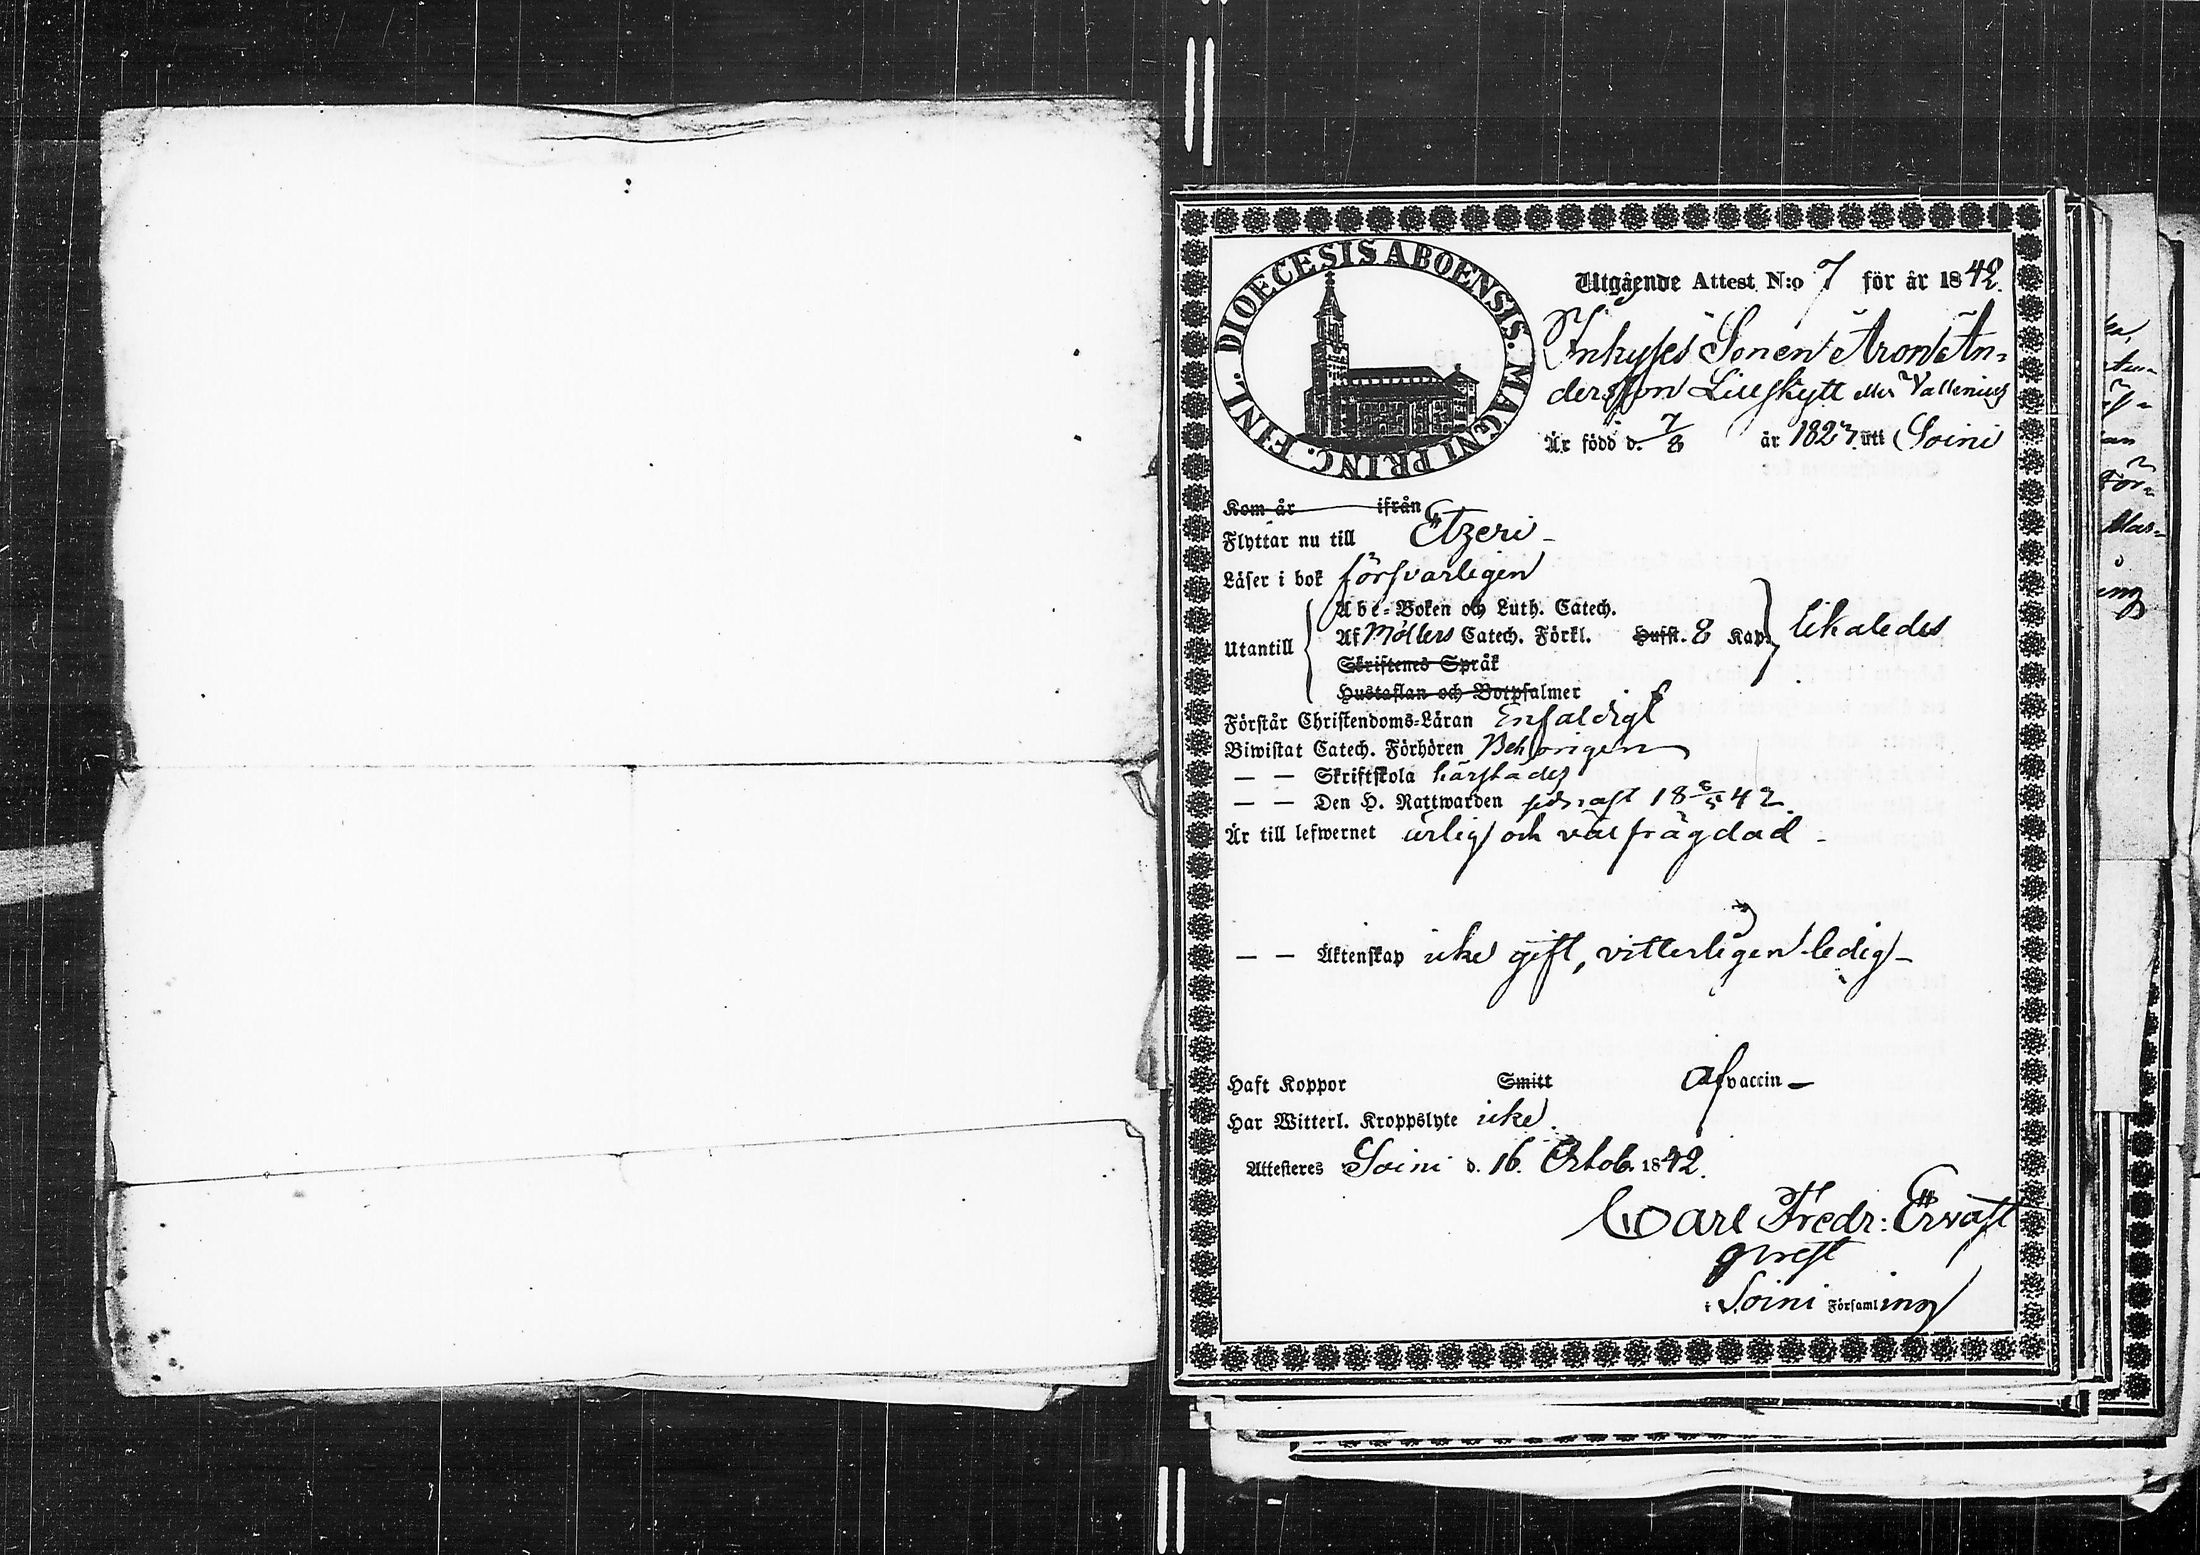 DIOECESIS ABOENSIS. MAGNI PRINC. FINL.
Utgående Attest N:o 7 för år 1842.
Inhyses Sonen Aron An-
dersson Lillskytt eller Vallenius
Är född d. 7/8 år 1823 uti Soini
Kom år ifrån
Flyttar nu till Etzeri -
Läser i bok försvarligen
Utantill
Abc-Boken och Luth. Catech.
Af Möllers Catech. Förkl. Husst. 8 Kap. likaledes
Skriftenes Språk
Hustaflan och Botpsalmer
Förstår Christendoms-Läran Enfaldigt
Biwistat Catech. Förhören Behörigen
— — Skriftskola härstädes
— — Den H. Nattwarden sednast 18 /5 42.
Är till lefwernet ärlig och välfrägdad -
— — Äktenskap icke gift, vitterligen ledig -
Haft Koppor Smitt af vaccin -
Har Witterl. Kroppslyte icke.
Attesteres Soini d. 16. Octob. 1842.
Carl Fredr: Ervast
i Soini Församling